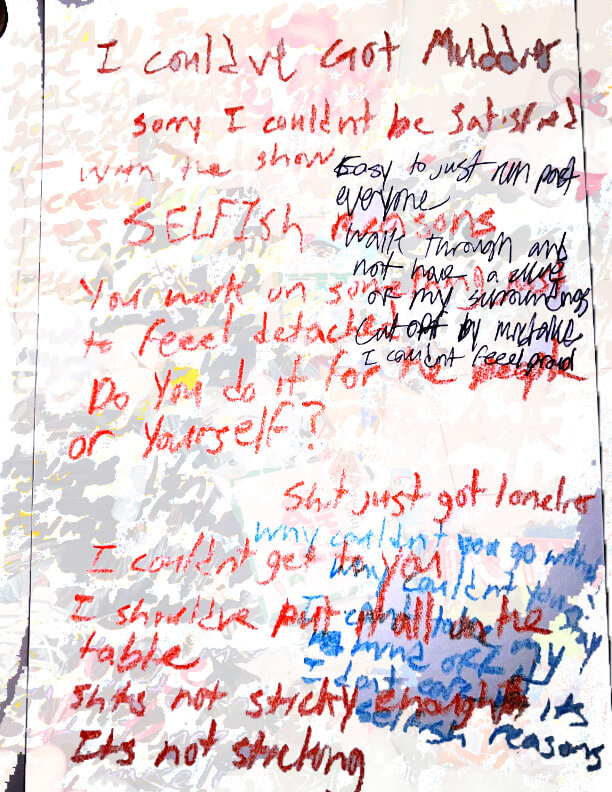 I could've Got Muddier
sorry I couldn't be satisfied
with the show
Easy to just run past
everyone
SELFISH reasons
Walk through and
not have a clue
of my surroundings
You work on something just
to feeel detached
Cut off by mistake
I couldn't feeel proud
Do You do it for the people
or Yourself?
Shit just got lonelier
Why couldn't you go with
Why couldn't you
I couldn't get to you
I should've put it all on the
table
I don't
Shits not sticky enough
its
selfish reasons
Its not sticking